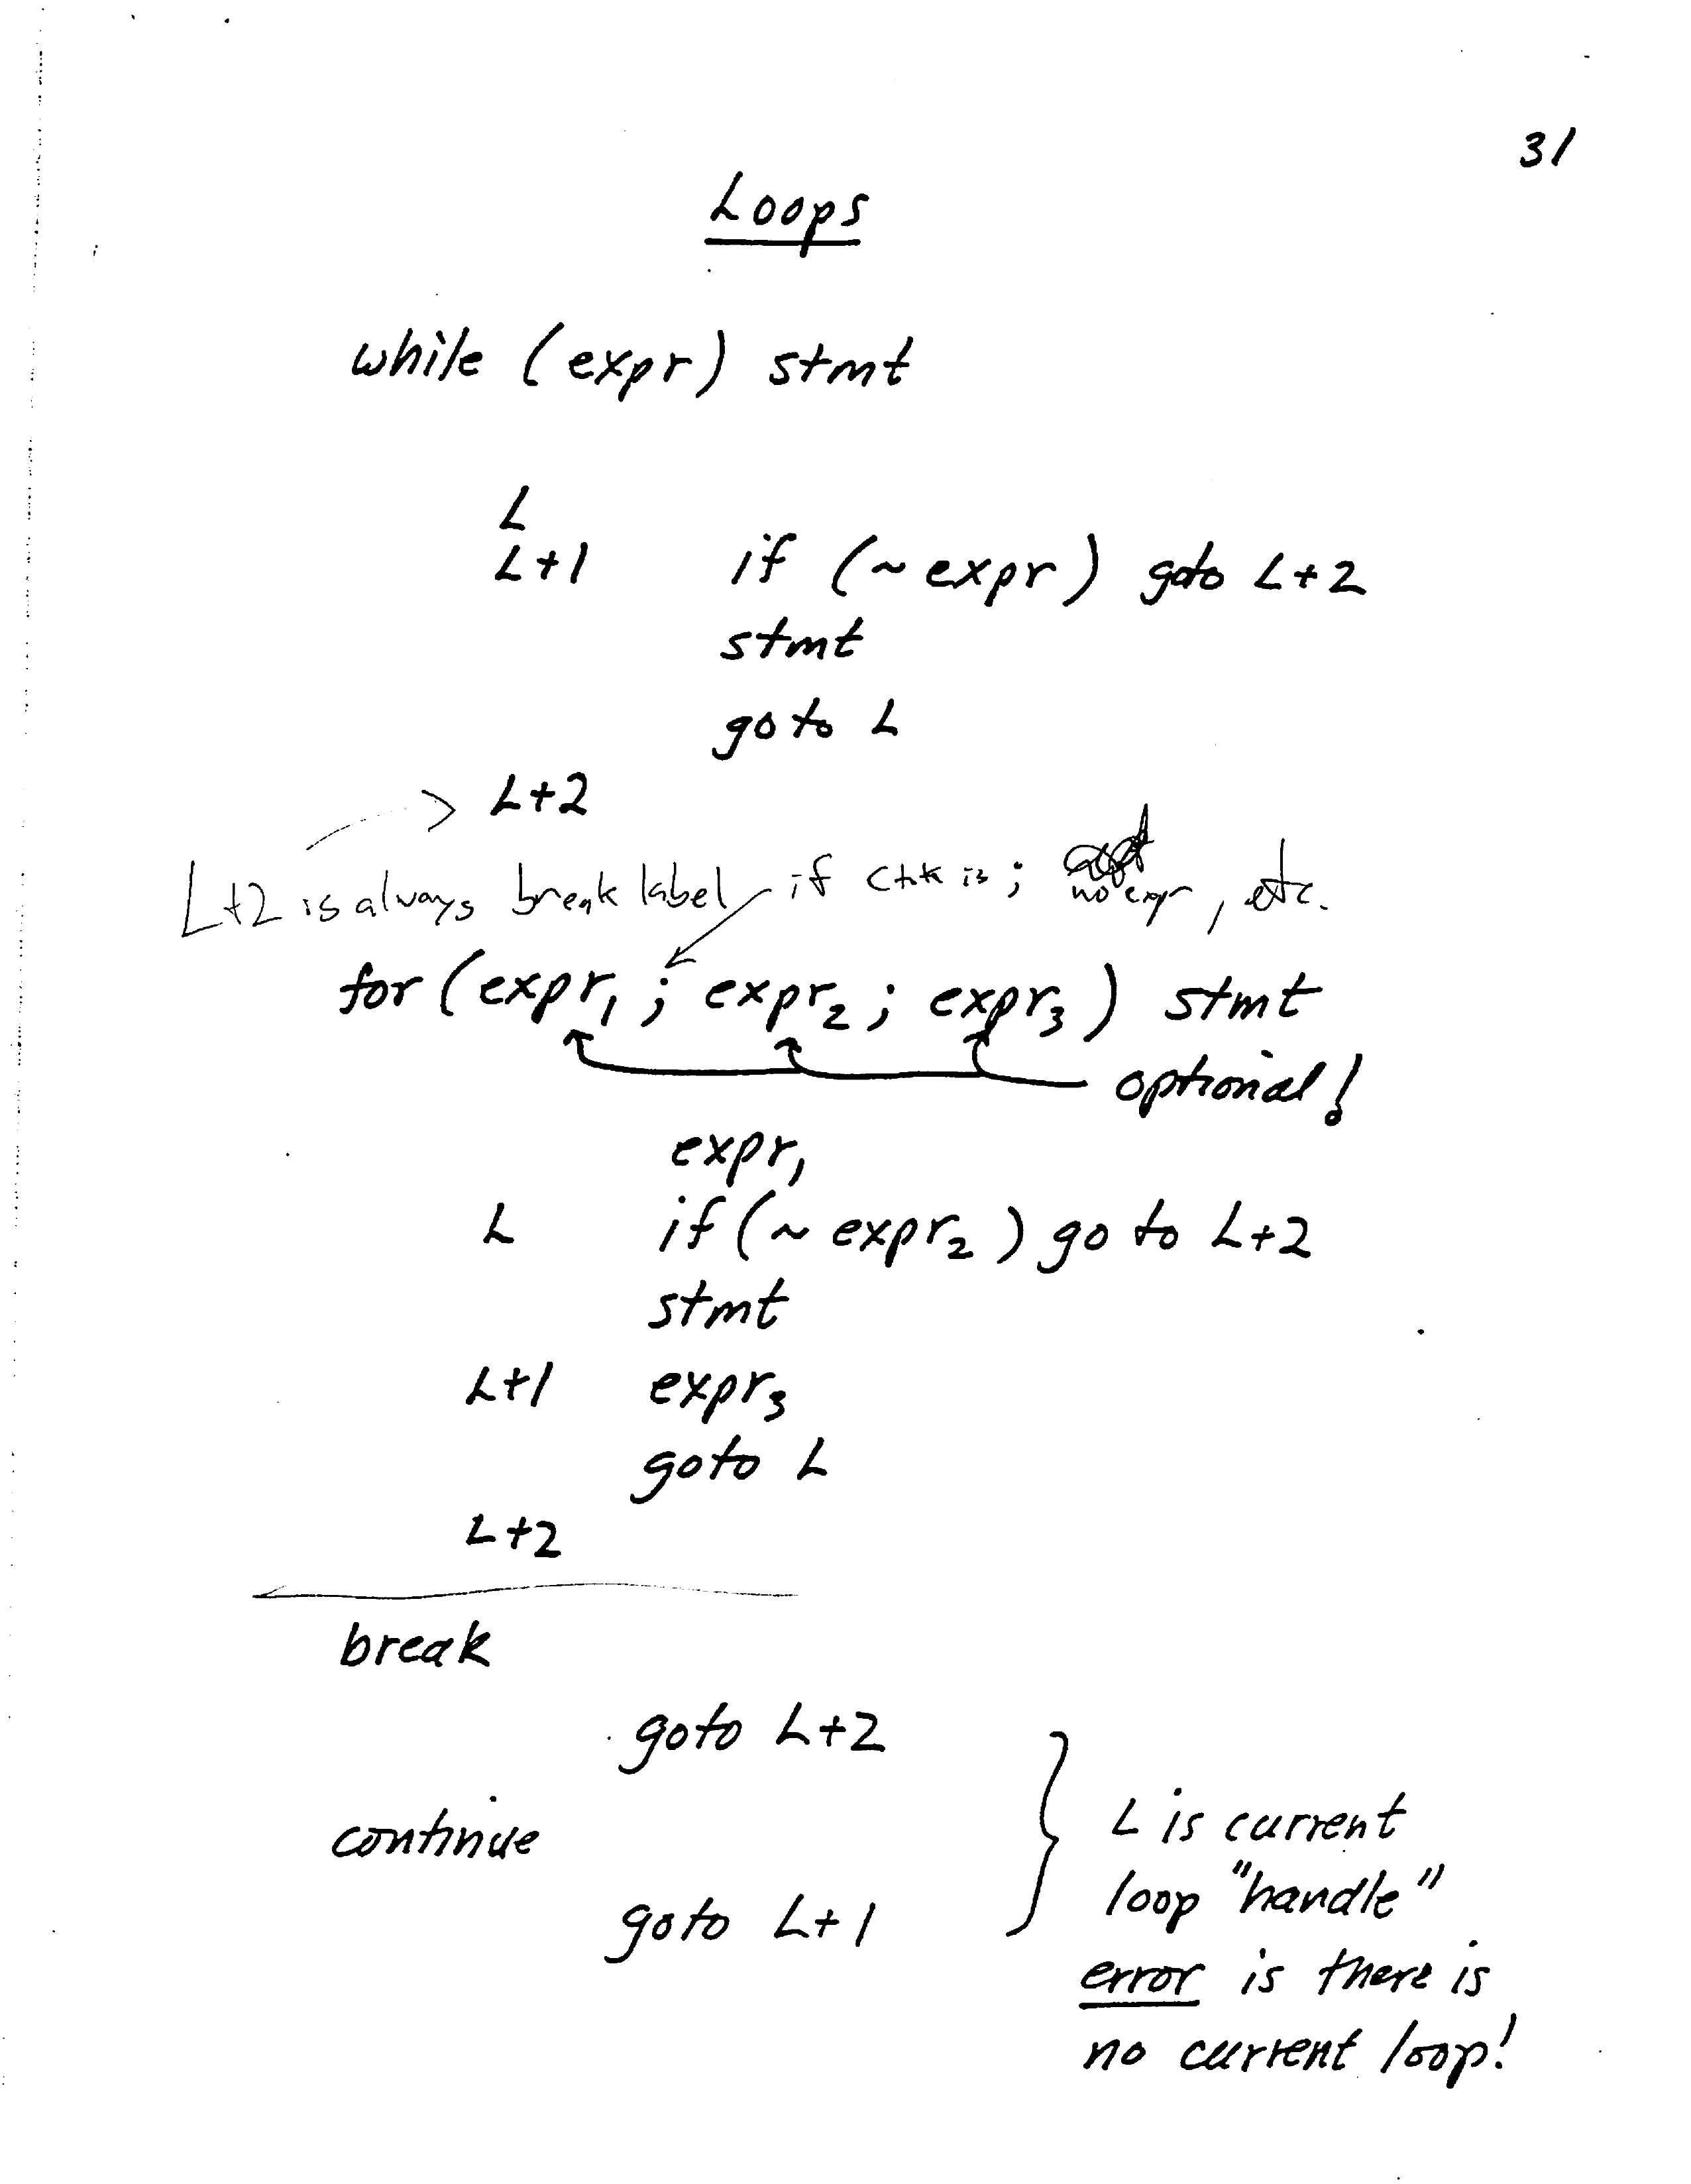 31
Loops
while (expr) stmt
L
L+1 if (~expr) goto L+2
stmt
goto L
L+2
L+2 is always break label if ctok is ; no expr, etc.
for (expr₁; expr₂; expr₃) stmt
optional!
expr₁
L if (~expr₂) go to L+2
stmt
L+1 expr₃
goto L
L+2
break
goto L+2
continue
goto L+1
L is current
loop "handle"
error is there is
no current loop!